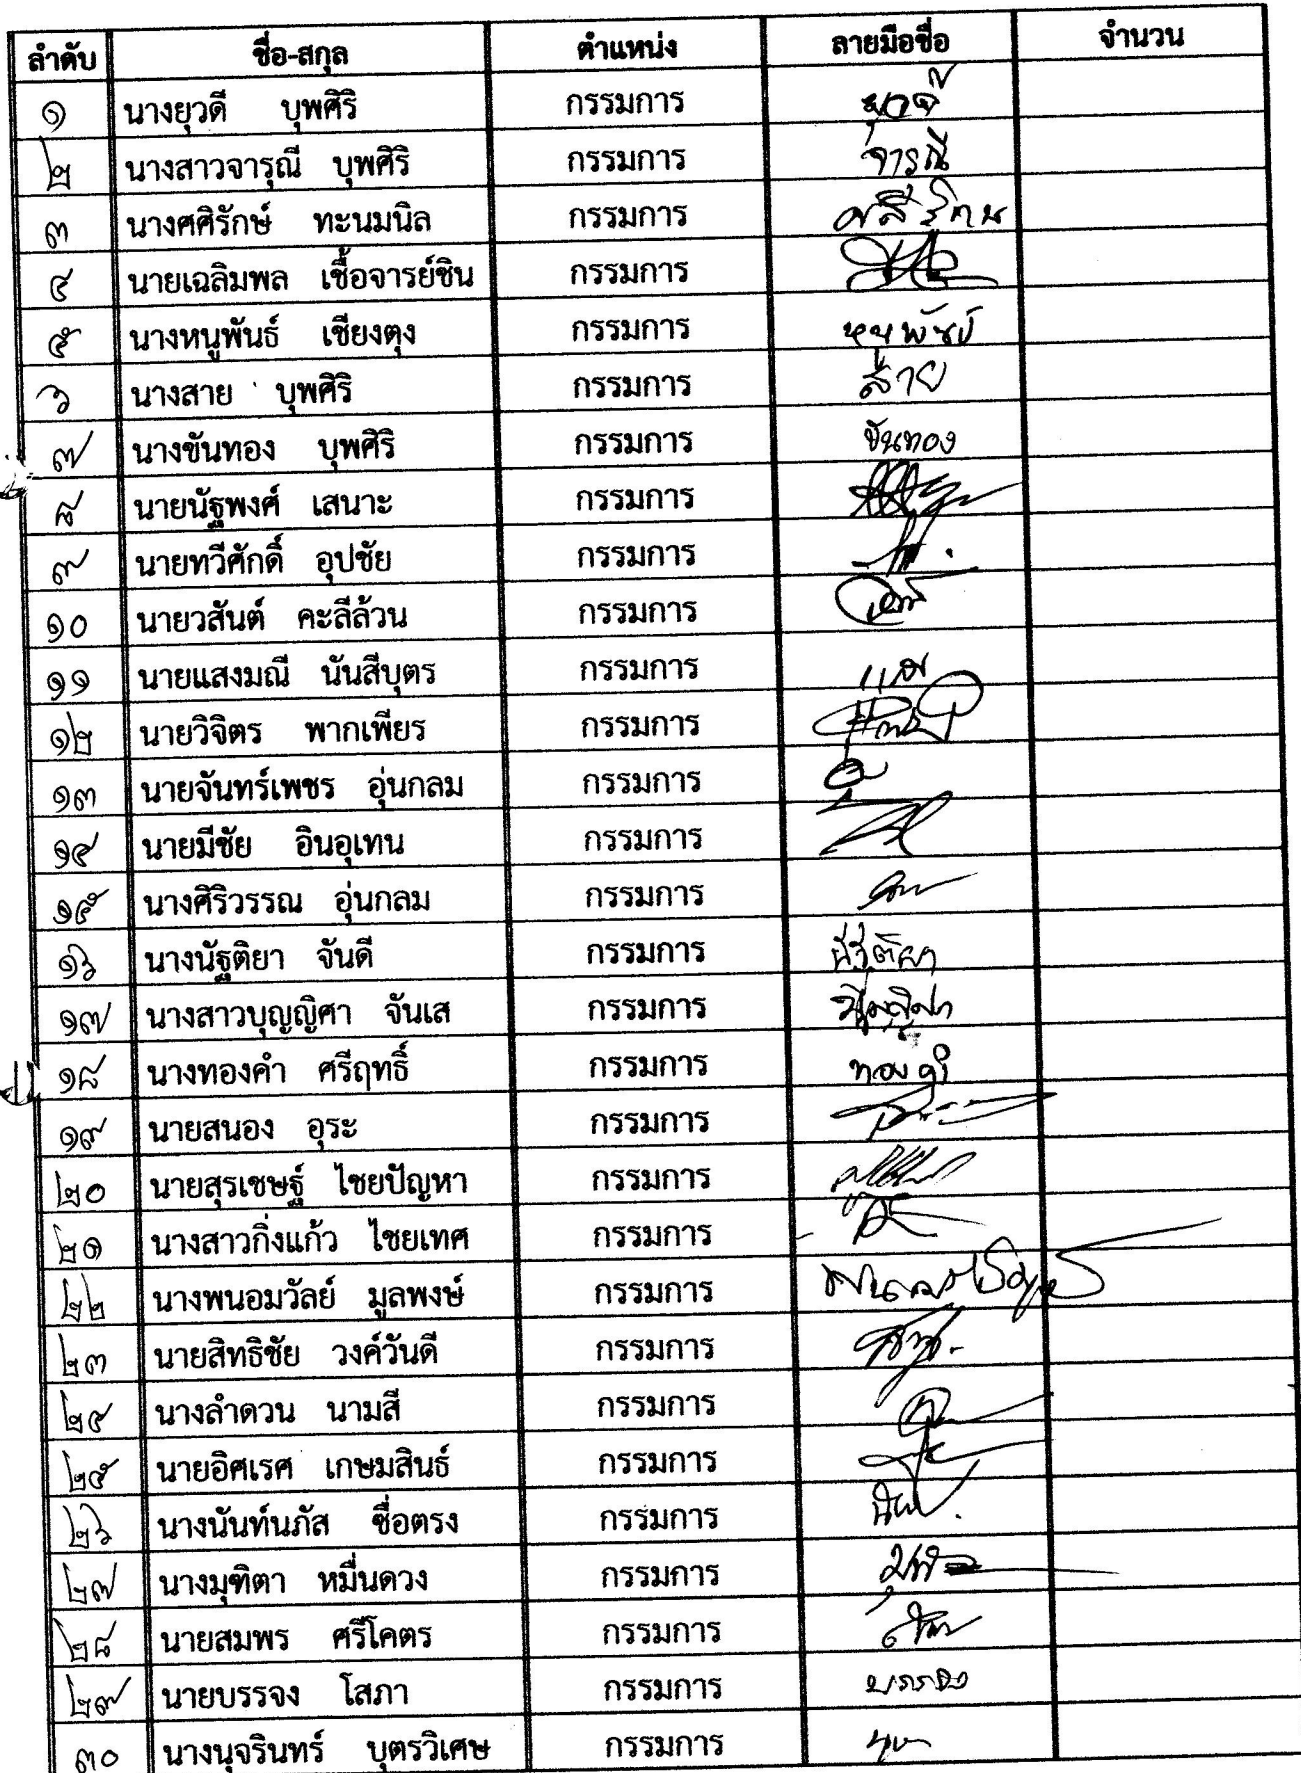 ลำดับ ชื่อ-สกุล ตำแหน่ง ลายมือชื่อ จำนวน
๑ นางยุวดี บุพศิริ กรรมการ
๒ นางสาวจารุณี บุพศิริ กรรมการ จารุณี
๓ นางศศิรักษ์ ทะนมนิล กรรมการ
๔ นายเฉลิมพล เชื้อจารย์ชิน กรรมการ
๕ นางหนูพันธ์ เชียงตุง กรรมการ หนูพันธ์
๖ นางสาย บุพศิริ กรรมการ สาย
๗ นางขันทอง บุพศิริ กรรมการ ขันทอง
๘ นายนัฐพงศ์ เสนาะ กรรมการ
๙ นายทวีศักดิ์ อุปชัย กรรมการ
๑๐ นายวสันต์ คะลีล้วน กรรมการ
๑๑ นายแสงมณี นันสีบุตร กรรมการ
๑๒ นายวิจิตร พากเพียร กรรมการ
๑๓ นายจันทร์เพชร อุ่นกลม กรรมการ
๑๔ นายมีชัย อินอุเทน กรรมการ
๑๕ นางศิริวรรณ อุ่นกลม กรรมการ
๑๖ นางนัฐติยา จันดี กรรมการ นัฐติยา
๑๗ นางสาวบุญญิศา จันเส กรรมการ
๑๘ นางทองคำ ศรีฤทธิ์ กรรมการ ทองคำ
๑๙ นายสนอง อุระ กรรมการ
๒๐ นายสุรเชษฐ์ ไชยปัญหา กรรมการ
๒๑ นางสาวกิ่งแก้ว ไชยเทศ กรรมการ
๒๒ นางพนอมวัลย์ มูลพงษ์ กรรมการ
๒๓ นายสิทธิชัย วงค์วันดี กรรมการ
๒๔ นางลำดวน นามสี กรรมการ
๒๕ นายอิศเรศ เกษมสินธ์ กรรมการ
๒๖ นางนันท์นภัส ซื่อตรง กรรมการ
๒๗ นางมุฑิตา หมื่นดวง กรรมการ
๒๘ นายสมพร ศรีโคตร กรรมการ
๒๙ นายบรรจง โสภา กรรมการ บรรจง
๓๐ นางนุจรินทร์ บุตรวิเศษ กรรมการ